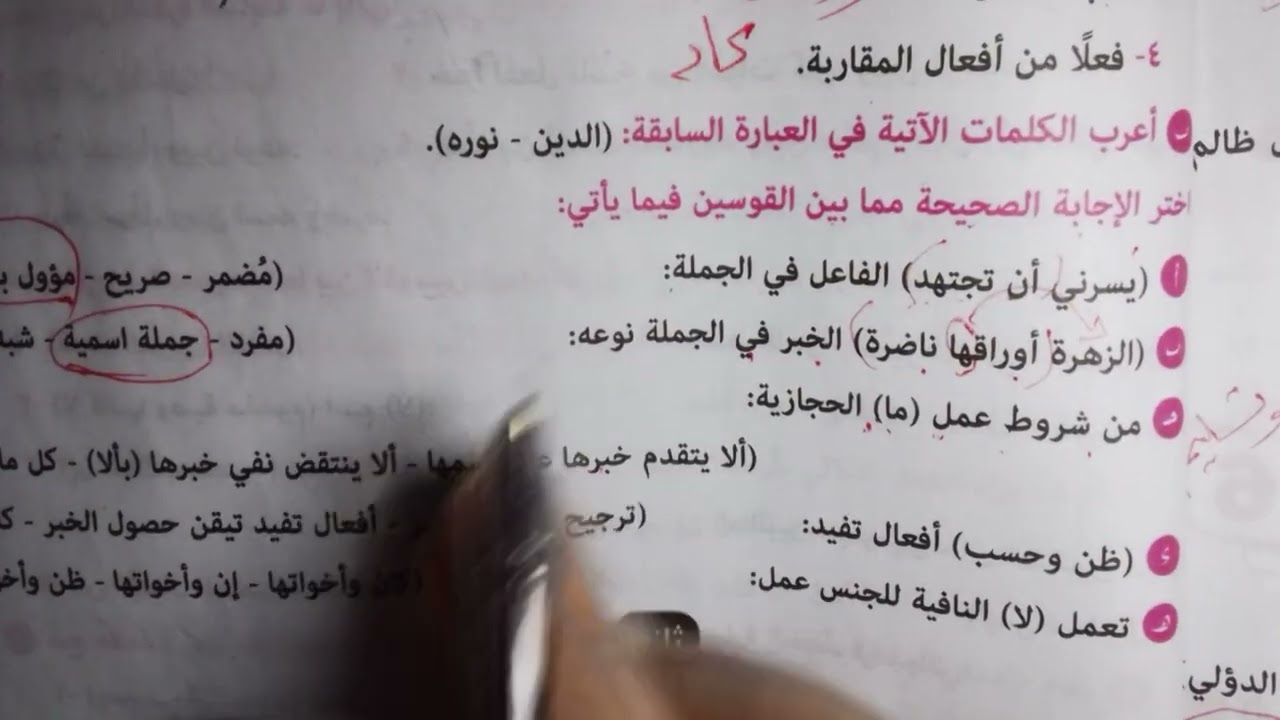 ٤- فعلًا من أفعال المقاربة. كاد
ب أعرب الكلمات الآتية في العبارة السابقة: (الدين - نوره).
ظالم
اختر الإجابة الصحيحة مما بين القوسين فيما يأتي:
أ (يسرني أن تجتهد) الفاعل في الجملة: (مُضمر - صريح - مؤول
ب (الزهرة أوراقها ناضرة) الخبر في الجملة نوعه: (مفرد - جملة اسمية -
ج من شروط عمل (ما) الحجازية:
(ألا يتقدم خبرها - ألا ينتقض نفي خبرها (بألا) - كل
د (ظن وحسب) أفعال تفيد: (ترجيح - أفعال تفيد تيقن حصول الخبر -
هـ تعمل (لا) النافية للجنس عمل: (كان وأخواتها - إن وأخواتها - ظن
الدؤلي